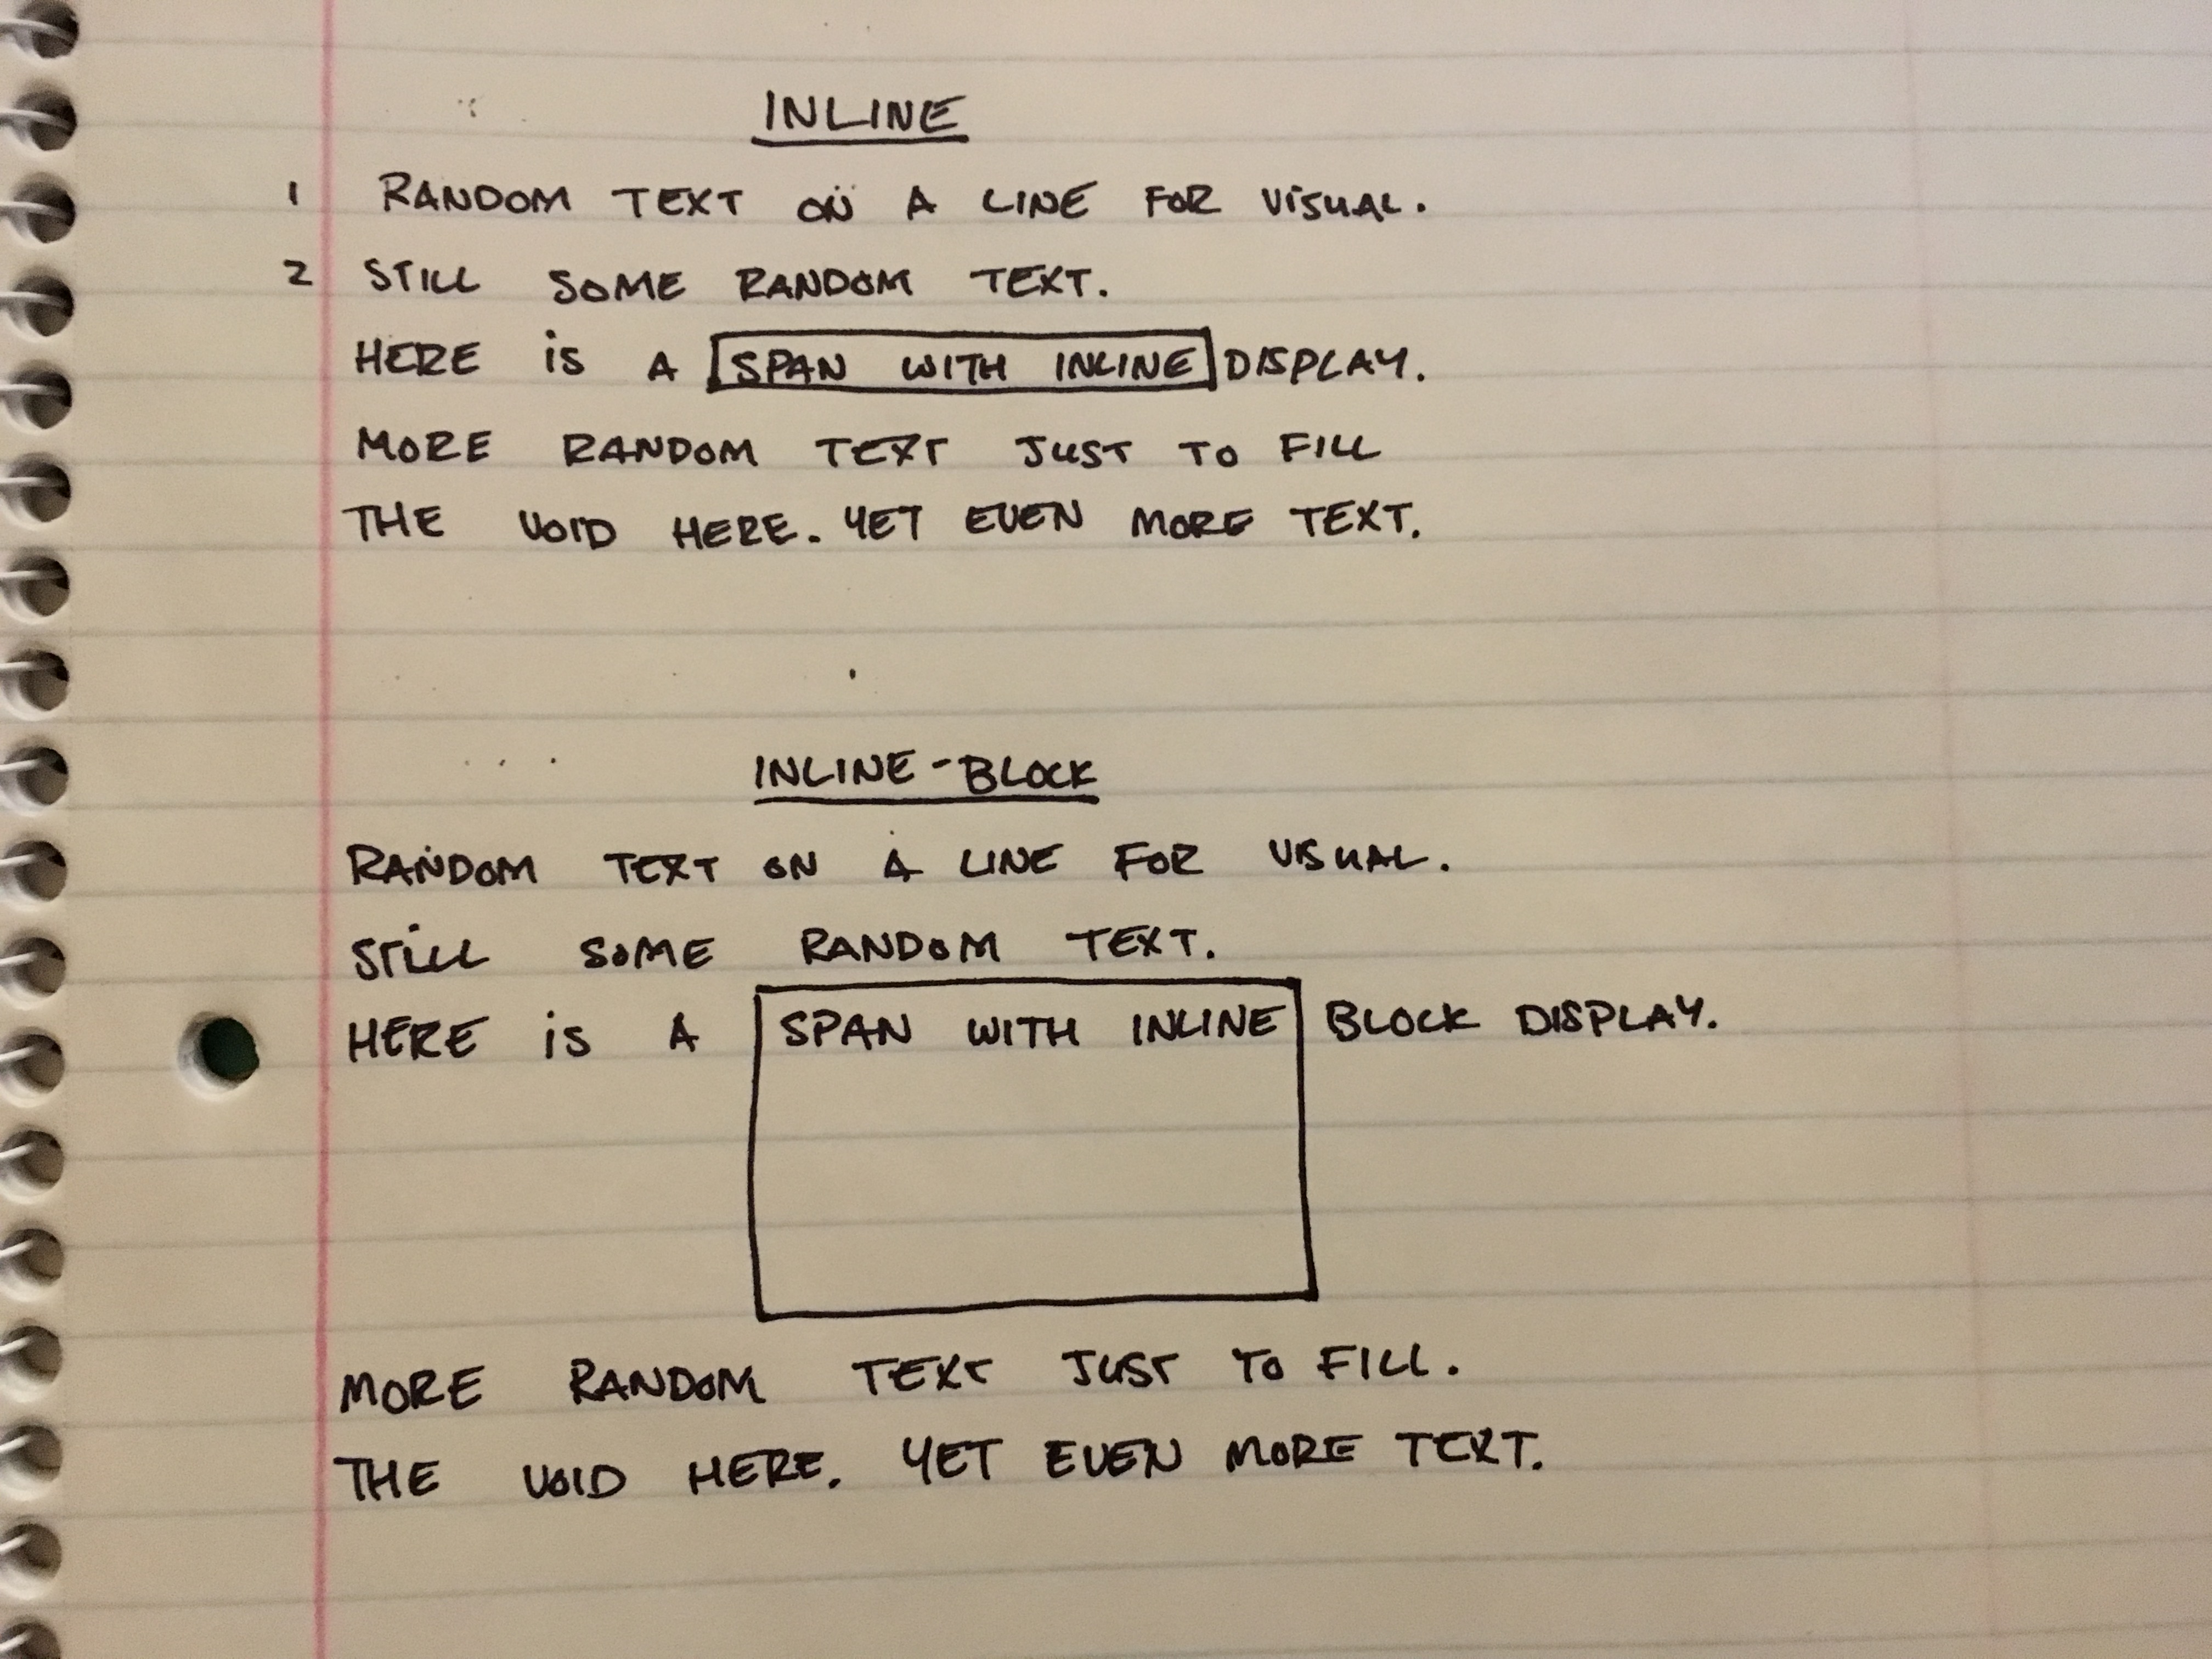 INLINE
1 RANDOM TEXT ON A LINE FOR VISUAL.
2 STILL SOME RANDOM TEXT.
HERE IS A SPAN WITH INLINE DISPLAY.
MORE RANDOM TEXT JUST TO FILL
THE VOID HERE. YET EVEN MORE TEXT.
INLINE-BLOCK
RANDOM TEXT ON A LINE FOR VISUAL.
STILL SOME RANDOM TEXT.
HERE IS A SPAN WITH INLINE BLOCK DISPLAY.
MORE RANDOM TEXT JUST TO FILL.
THE VOID HERE. YET EVEN MORE TEXT.